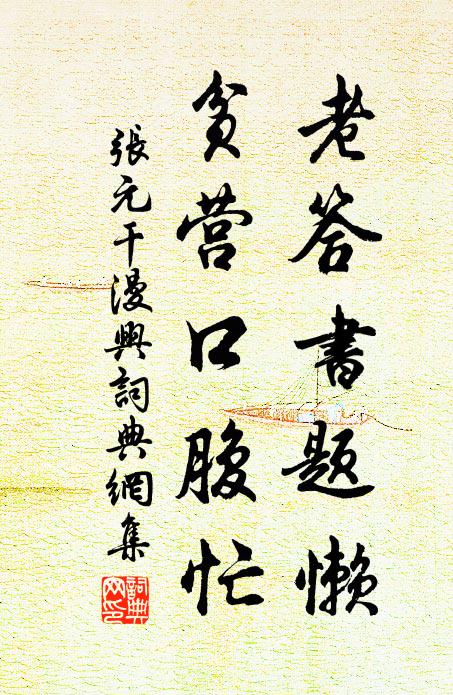 老答書題懶
貧营口腹忙
張元干漫興詞典網集
詞典网印